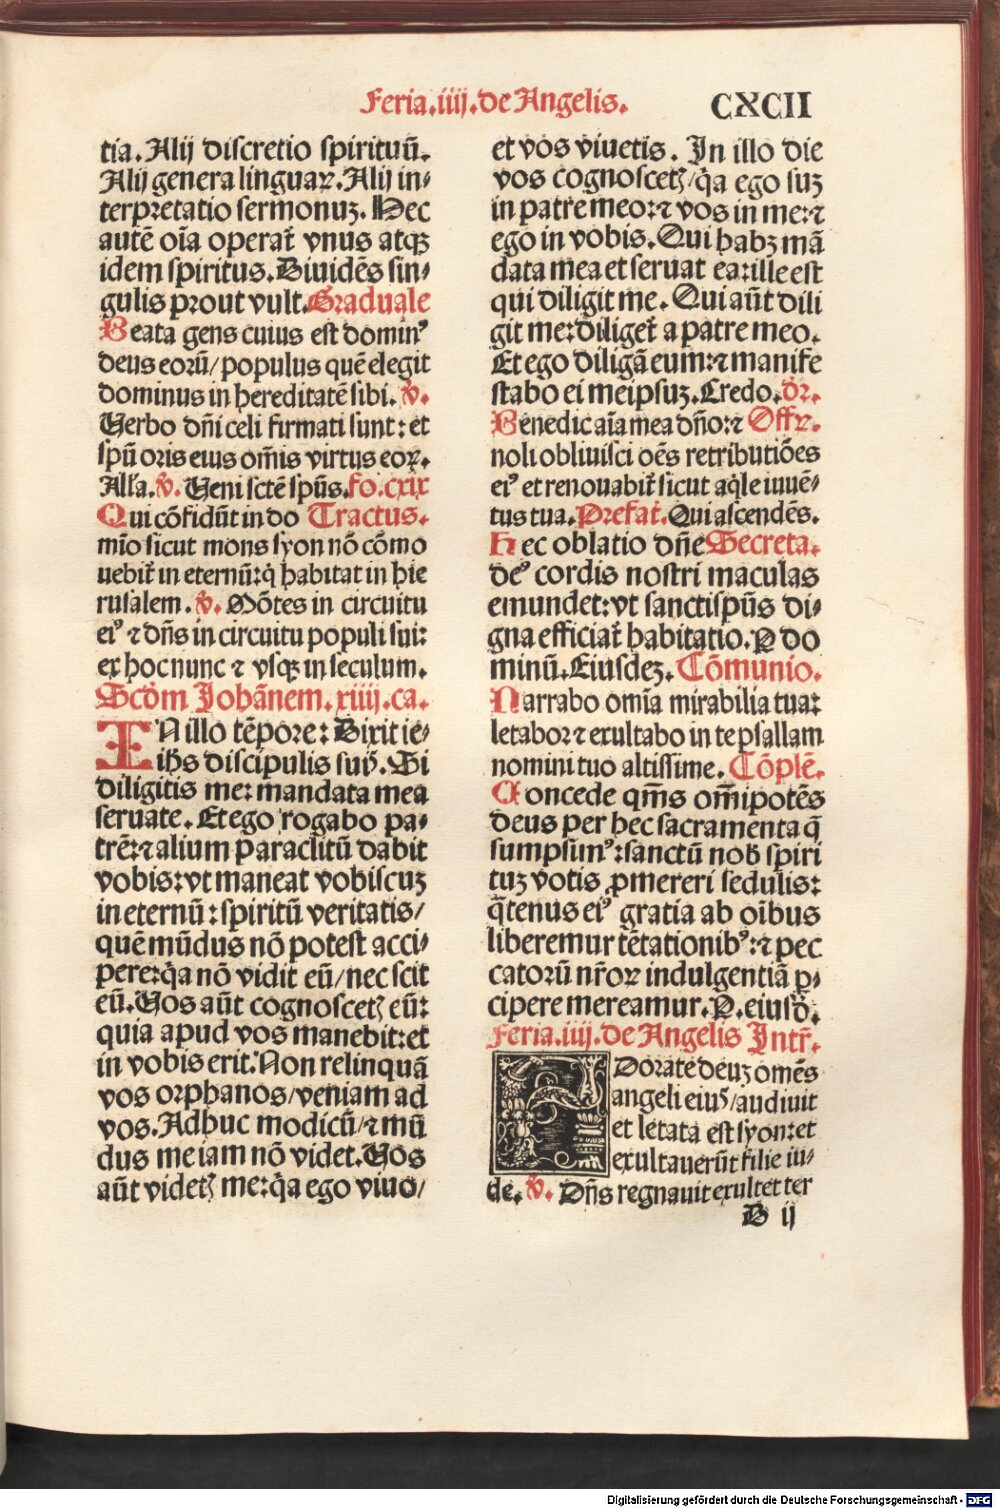 Feria.iiij.de Angelis. CXCII
tia. Alij discretio spirituū.
Alij genera linguaꝝ. Alij in⸗
terpretatio sermonuꝫ. Hec
autē oīa operat᷑ vnus atqꝫ
idem spiritus. Diuidēs sin⸗
gulis prout vult. Graduale
Beata gens cuius est dominꝰ
deus eorū/populus quē elegit
dominus in hereditatē sibi. v̄.
Verbo dn̄i celi firmati sunt: et
spū oris eius om̄is virtus eoꝝ.
Alľa. v̄. Veni sctē spūs. fo.cxix
Qui cōfidūt in do Tractus.
mīo sicut mons syon nō cōmo
uebit᷑ in eternū: q̇ habitat in hie
rusalem. v̄. Mōtes in circuitu
eiꝰ ⁊ dn̄s in circuitu populi sui:
ex hoc nunc ⁊ vsqꝫ in seculum.
Scd̄m Johānem. xiiij. ca.
IN illo tēpore: Dixit ie⸗
ih̄s discipulis suꝭ. Si
diligitis me: mandata mea
seruate. Et ego rogabo pa⸗
trē: ⁊ alium paraclitū dabit
vobis: vt maneat vobiscuꝫ
in eternū: spiritū veritatis/
quē mūdus nō potest acci⸗
pere: q̇a nō vidit eū/nec scit
eū. Vos aūt cognoscetꝭ eū:
quia apud vos manebit: et
in vobis erit. Non relinquā
vos orphanos/veniam ad
vos. Adhuc modicū/⁊ mū
dus me iam nō videt. Vos
aūt videtꝭ me: q̇a ego viuo/
et vos viuetis. In illo die
vos cognoscetꝭ/q̇a ego suꝫ
in patre meo: ⁊ vos in me: ⁊
ego in vobis. Qui habꝫ mā
data mea et seruat ea: ille est
qui diligit me. Qui aūt dili
git me: diliget᷑ a patre meo.
Et ego diligā eum: ⁊ manife
stabo ei meipsuꝫ. Credo. d̄r.
Benedic aīa mea dn̄o: ⁊ Offꝝ.
noli obliuisci oēs retributiōes
eiꝰ et renouabit᷑ sicut aq̇le iuuē⸗
tus tua. Prefat᷑. Qui ascendēs.
Hec oblatio dn̄e Secreta.
deꝰ cordis nostri maculas
emundet: vt sanctispūs di⸗
gna efficiat᷑ habitatio. P do
minū. Eiusdeꝫ. Cōmunio.
Narrabo omīa mirabilia tua:
letabor ⁊ exultabo in te psallam
nomini tuo altissime. Cōplē.
Concede qm̄s om̄ipotēs
deus per hec sacramenta q̄
sumpsimꝰ: sanctū nob̄ spiri
tuꝫ votis ꝓmereri sedulis:
q̄tenus eiꝰ gratia ab oībus
liberemur tētationibꝰ: ⁊ pec
catorū nr̄oꝝ indulgentiā p⸗
cipere mereamur. P. eiusd̄.
Feria.iiij.de Angelis Intr̄.
ADorate deuꝫ omēs
angeli eiuꝰ/audiuit
et letata est syon: et
exultauerūt filie iu⸗
de. v̄. Dn̄s regnauit exultet ter
B ij
Digitalisierung gefördert durch die Deutsche Forschungsgemeinschaft - DFG